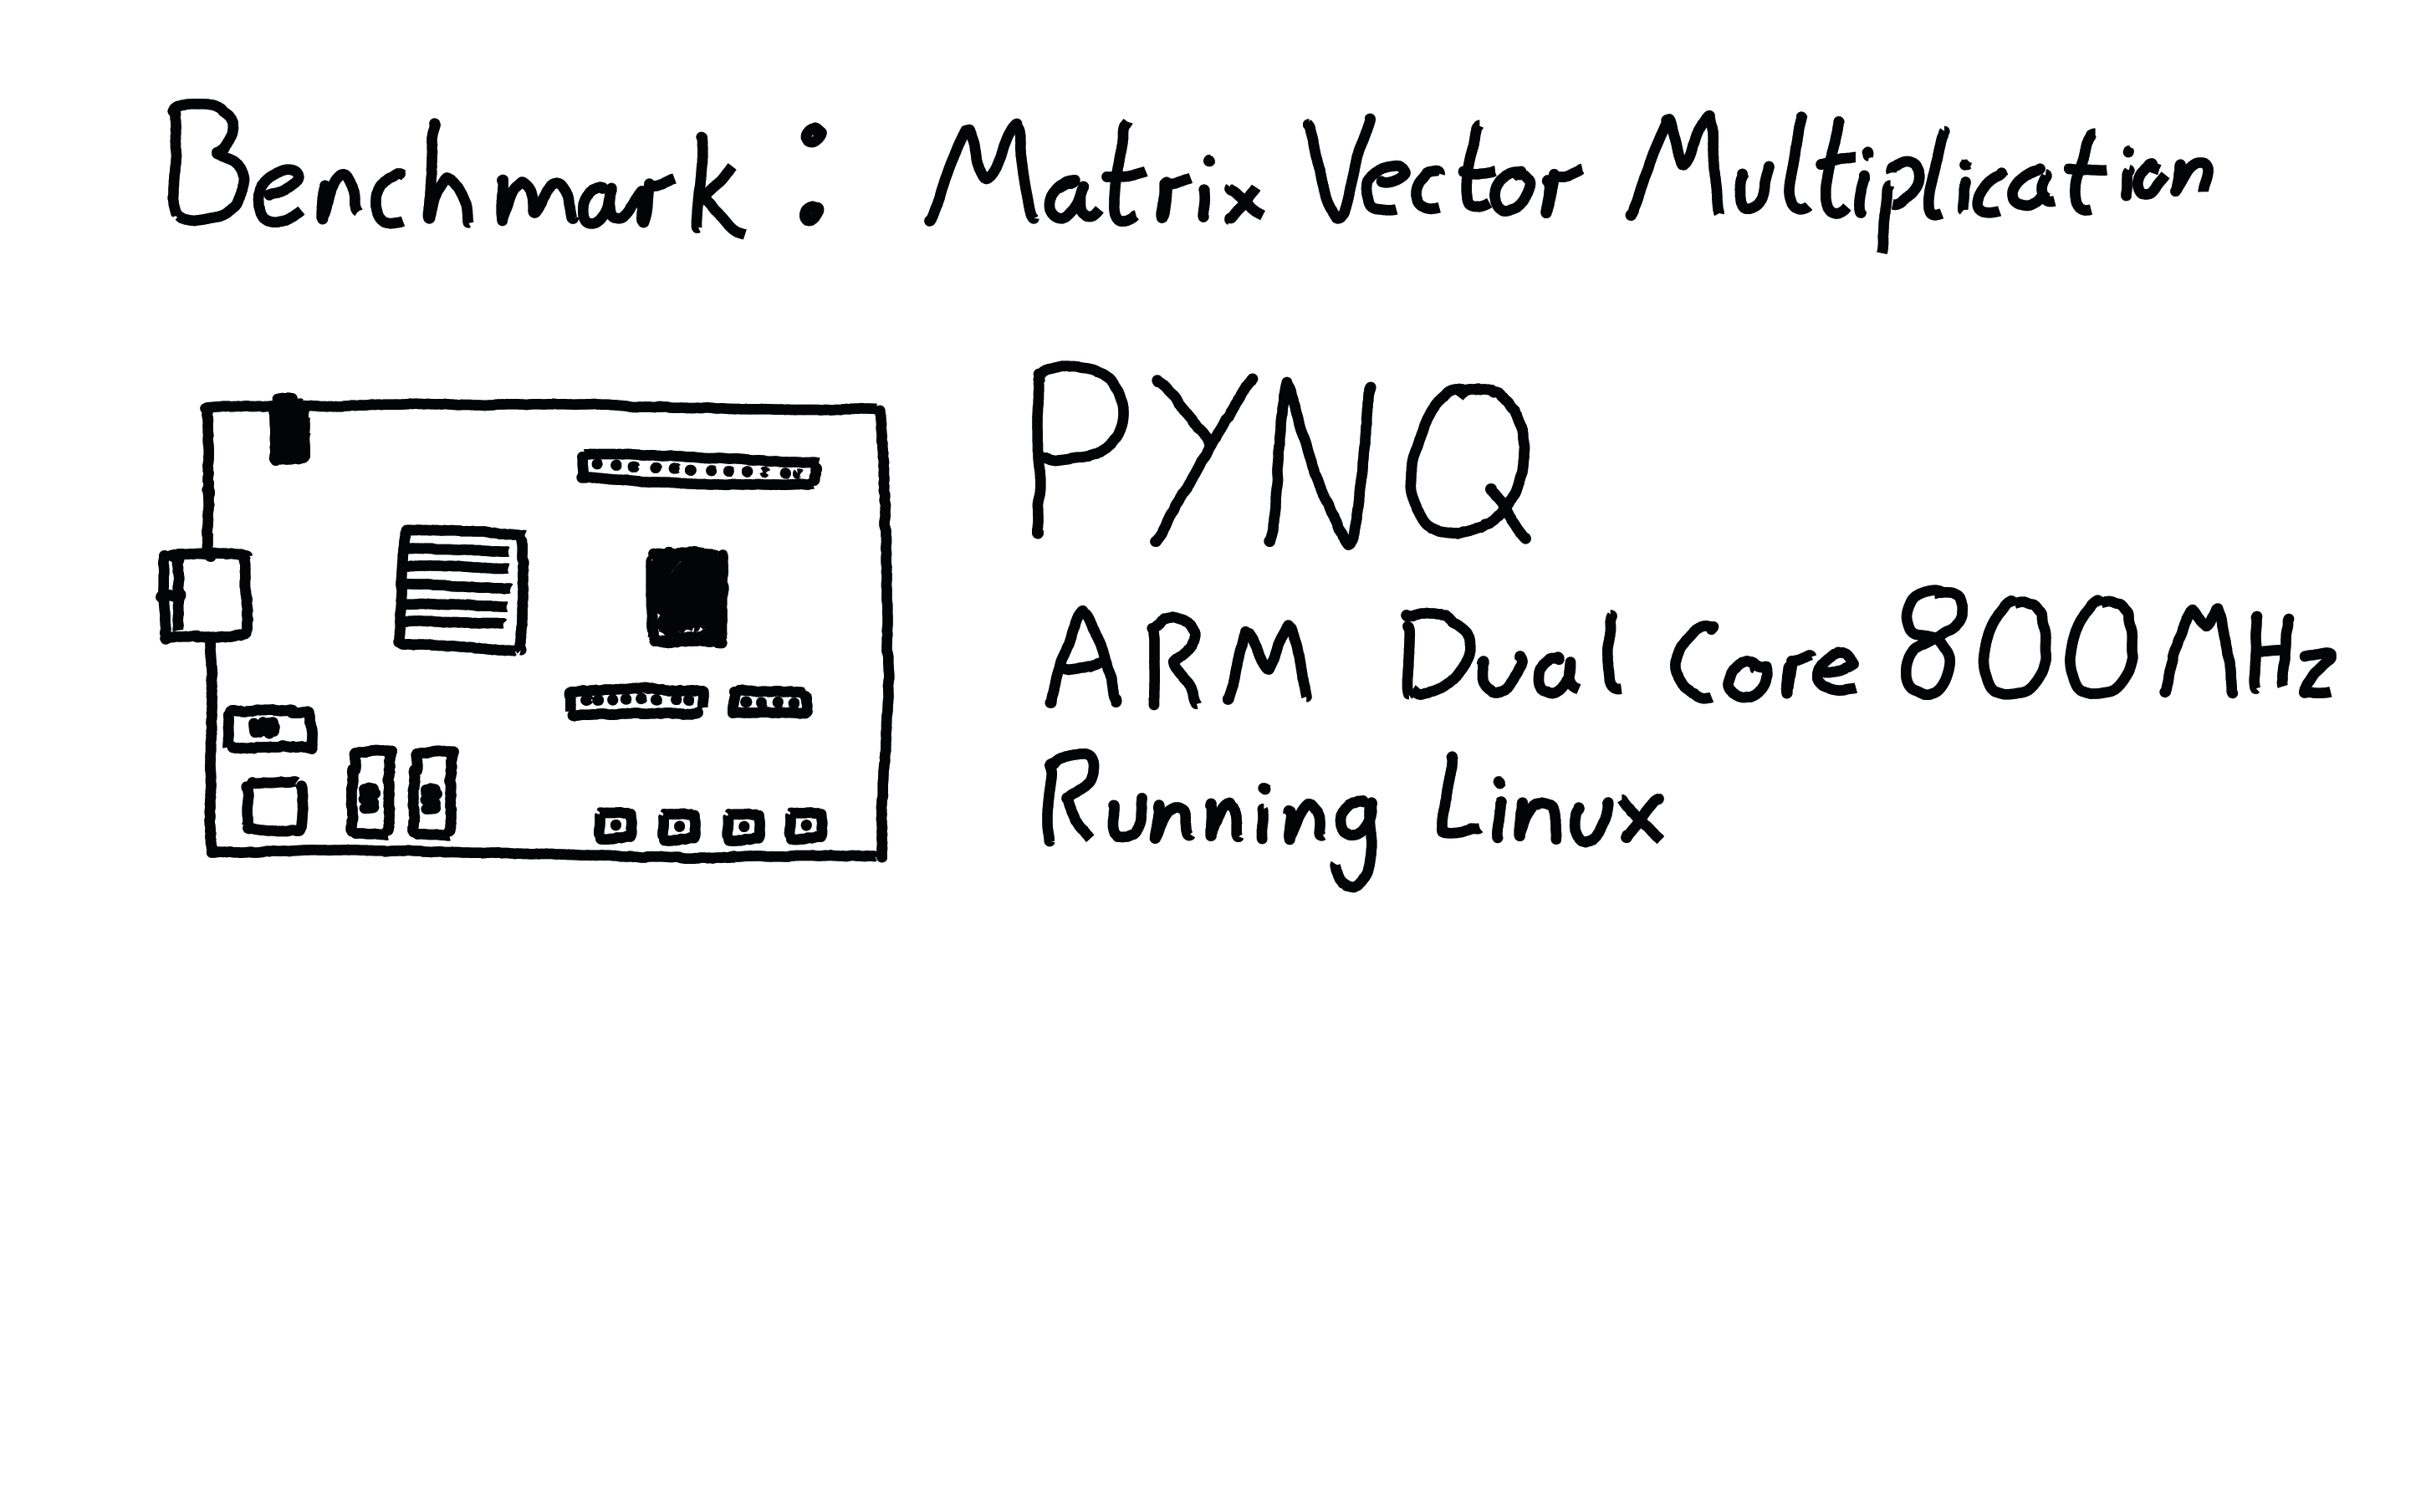 Benchmark: Matrix Vector Multiplication
PYNQ
ARM Dual Core 800MHz
Running Linux